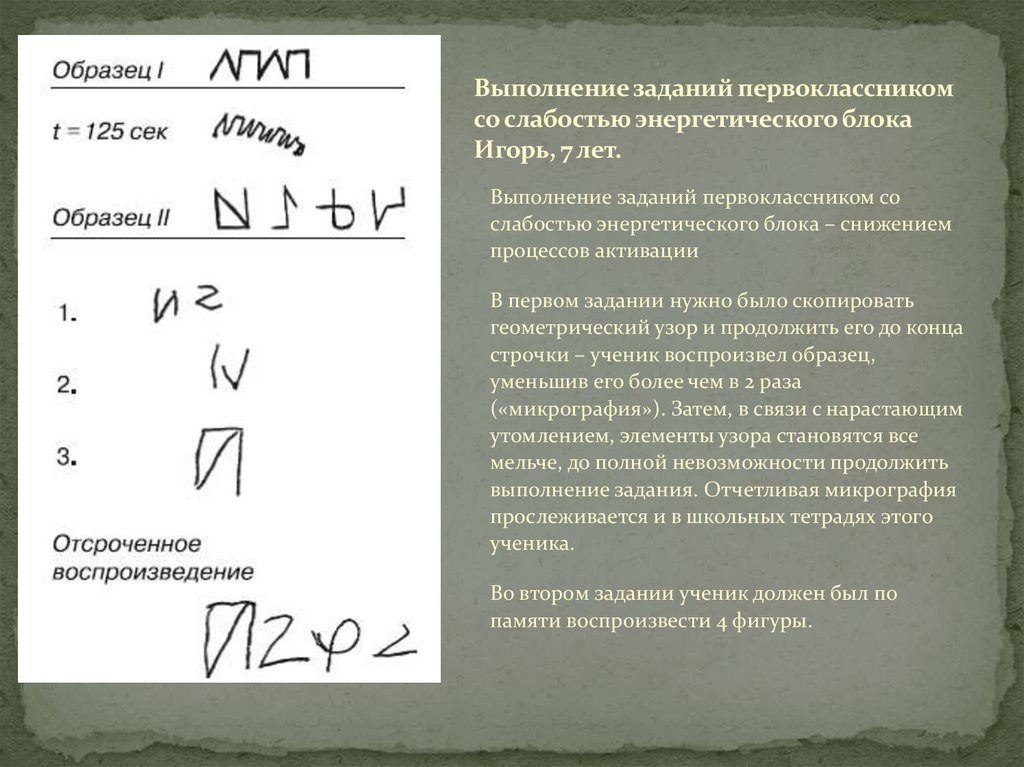 Образец I
t = 125 сек
Образец II
1.
2.
3.
Отсроченное
воспроизведение
Выполнение заданий первоклассником
со слабостью энергетического блока
Игорь, 7 лет.
Выполнение заданий первоклассником со
слабостью энергетического блока – снижением
процессов активации
В первом задании нужно было скопировать
геометрический узор и продолжить его до конца
строчки – ученик воспроизвел образец,
уменьшив его более чем в 2 раза
(«микрография»). Затем, в связи с нарастающим
утомлением, элементы узора становятся все
мельче, до полной невозможности продолжить
выполнение задания. Отчетливая микрография
прослеживается и в школьных тетрадях этого
ученика.
Во втором задании ученик должен был по
памяти воспроизвести 4 фигуры.